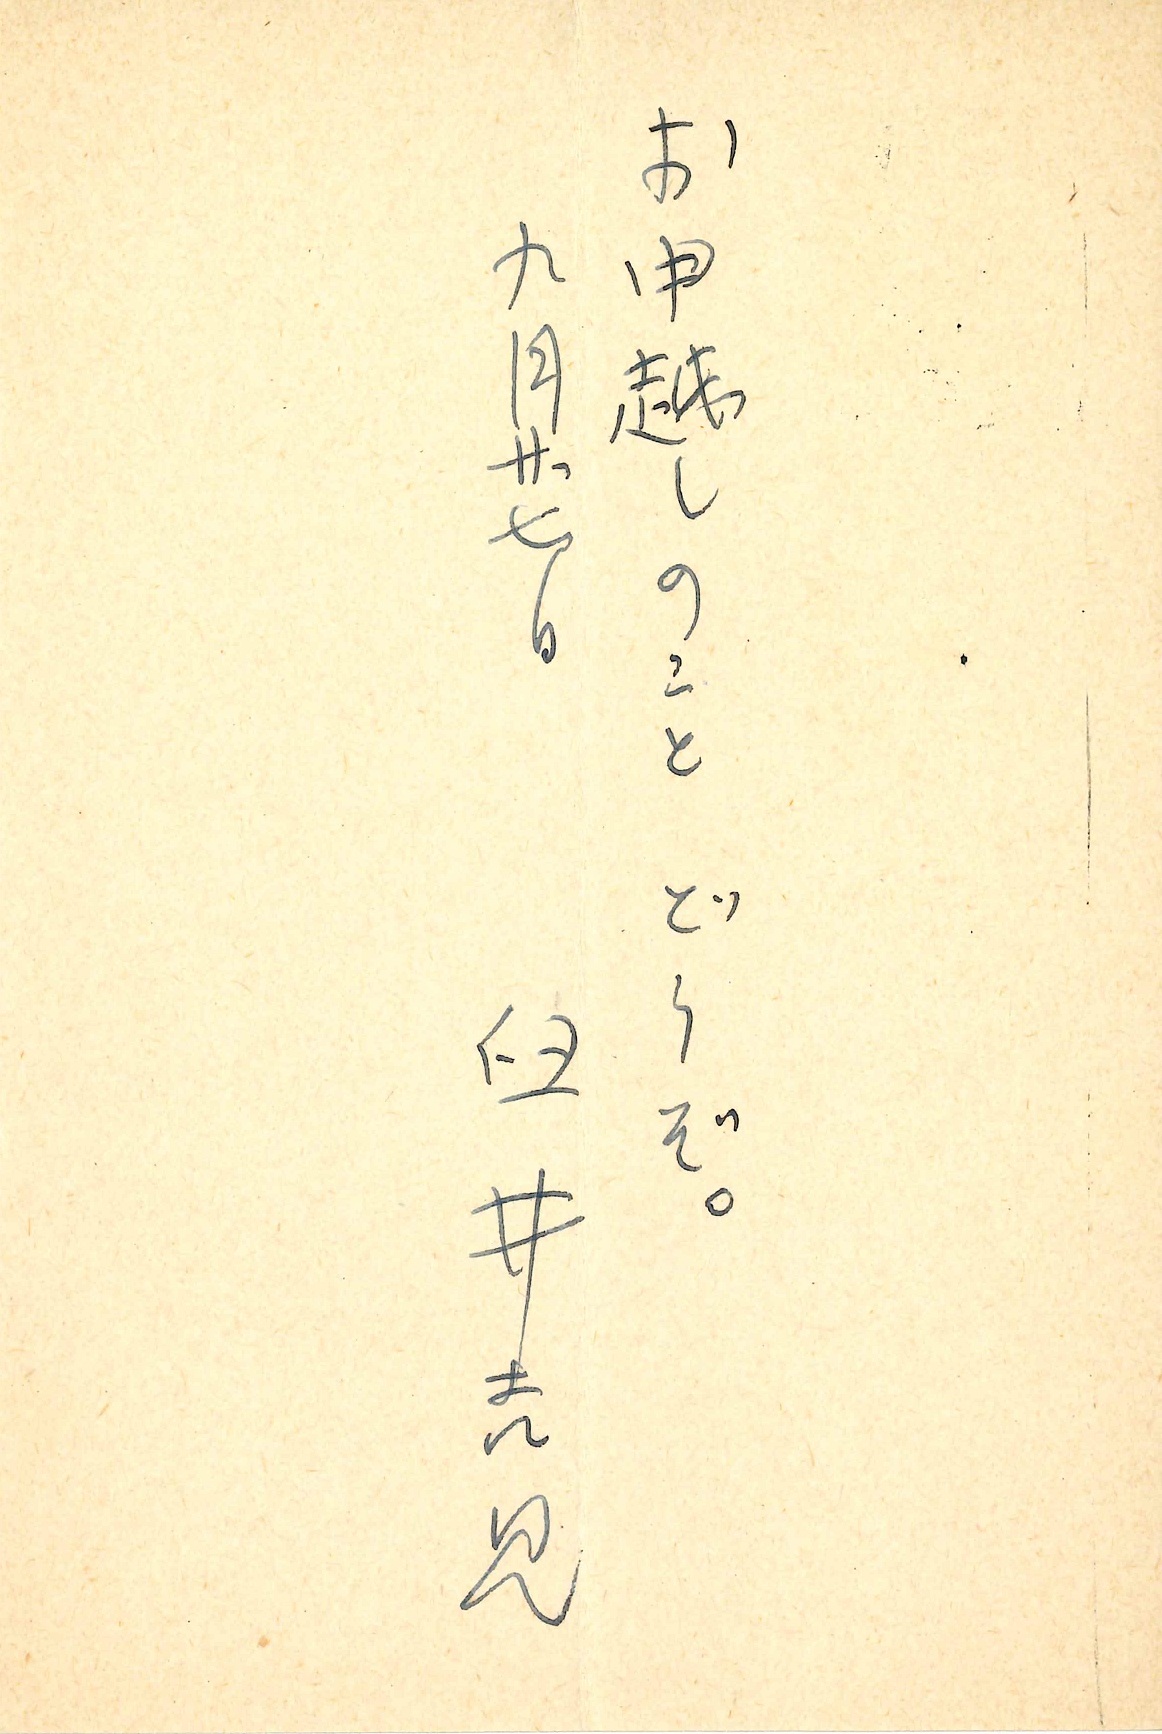 お申越しのこと どうぞ。
九月廿七日 臼井吉見